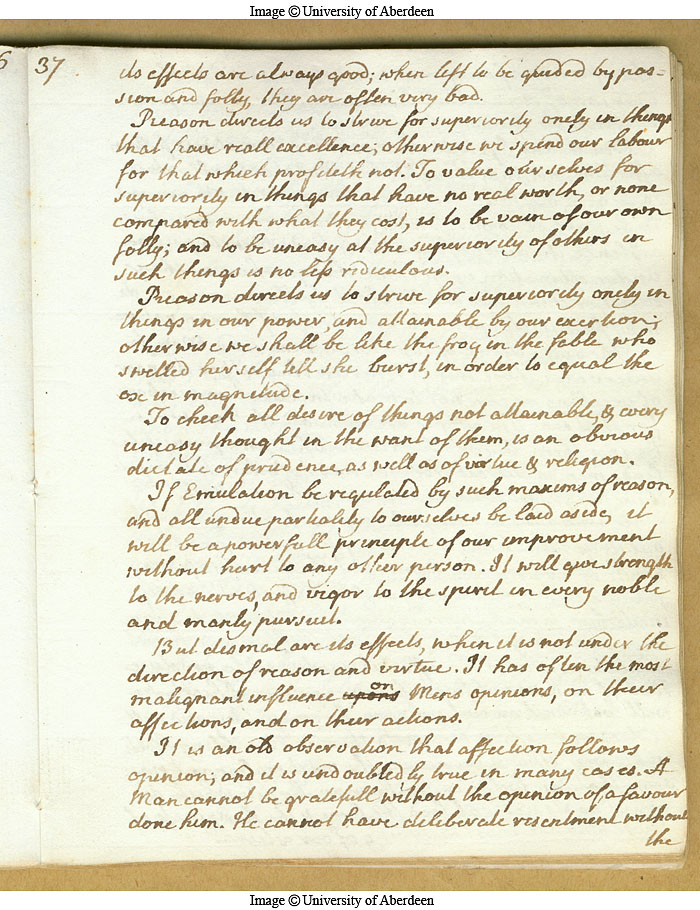 Image © University of Aberdeen
6 37
its effects are always good; when left to be guided by pas=
sion and folly, they are often very bad.
Reason directs us to strive for superiority onely in things
that have reall excellence; otherwise we spend our labour
for that which profiteth not. To value ourselves for
superiority in things that have no real worth, or none
compared with what they cost, is to be vain of our own
folly; and to be uneasy at the superiority of others in
such things is no less ridiculous.
Reason directs us to strive for superiority onely in
things in our power, and attainable by our exertion;
otherwise we shall be like the frog in the fable who
swelled herself till she burst, in order to equal the
ox in magnitude.
To check all desire of things not attainable, & every
uneasy thought in the want of them, is an obvious
dictate of prudence, as well as of virtue & religion.
If Emulation be regulated by such maxims of reason,
and all undue partiality to ourselves be laid aside, it
will be a powerfull principle of our improvement
without hurt to any other person. It will give strength
to the nerves, and vigor to the spirit in every noble
and manly pursuit.
But dismal are its effects, when it is not under the
direction of reason and virtue. It has often the most
malignant influence upons on Mens opinions, on their
affections, and on their actions.
It is an old observation that affection follows
opinion; and it is undoubtedly true in many cases. A
Man cannot be gratefull without the opinion of a favour
done him. He cannot have deliberate resentment without
the
Image © University of Aberdeen